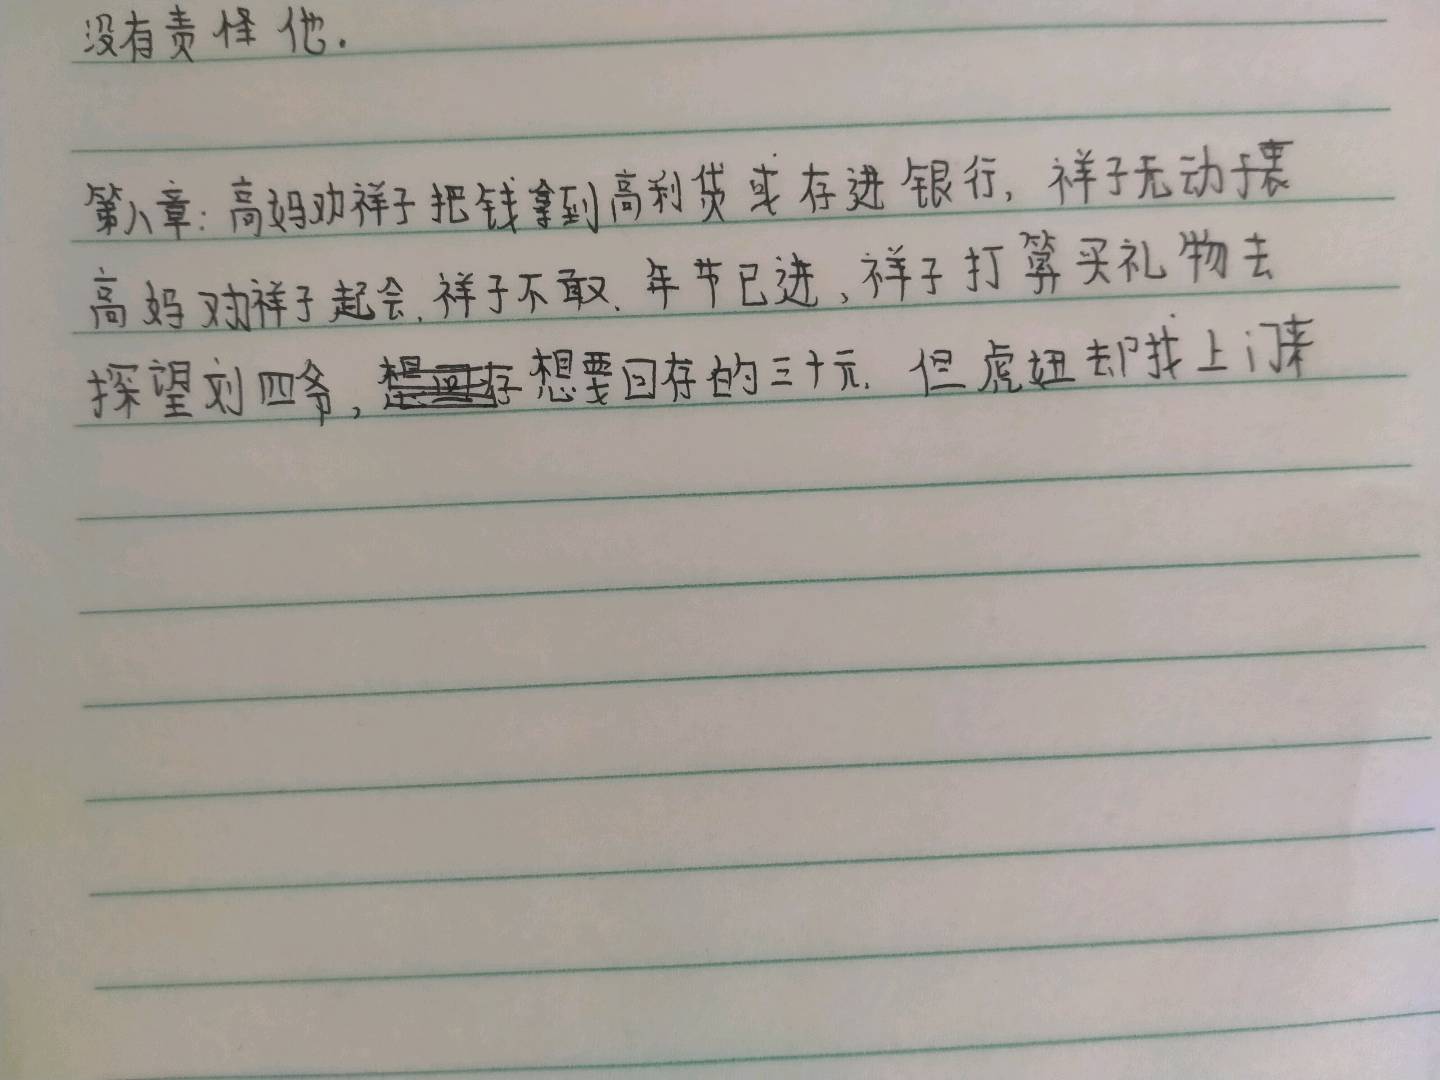 没有责怪他.
第八章:高妈劝祥子把钱拿到高利贷或存进银行,祥子无动于衷
高妈对祥子起会.祥子不敢.年节已进,祥子打算买礼物去
探望刘四爷,想要回存的三十元.但虎妞却找上门来